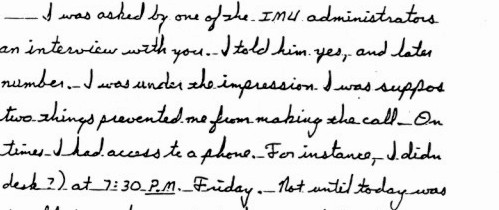 — I was asked by one of the IMU administrators
an interview with you. I told him yes, and later
number. I was under the impression I was suppos
two things prevented me from making the call. On
times I had access to a phone. For instance, I didn
desk?) at 7:30 P.M. Friday. Not until today was